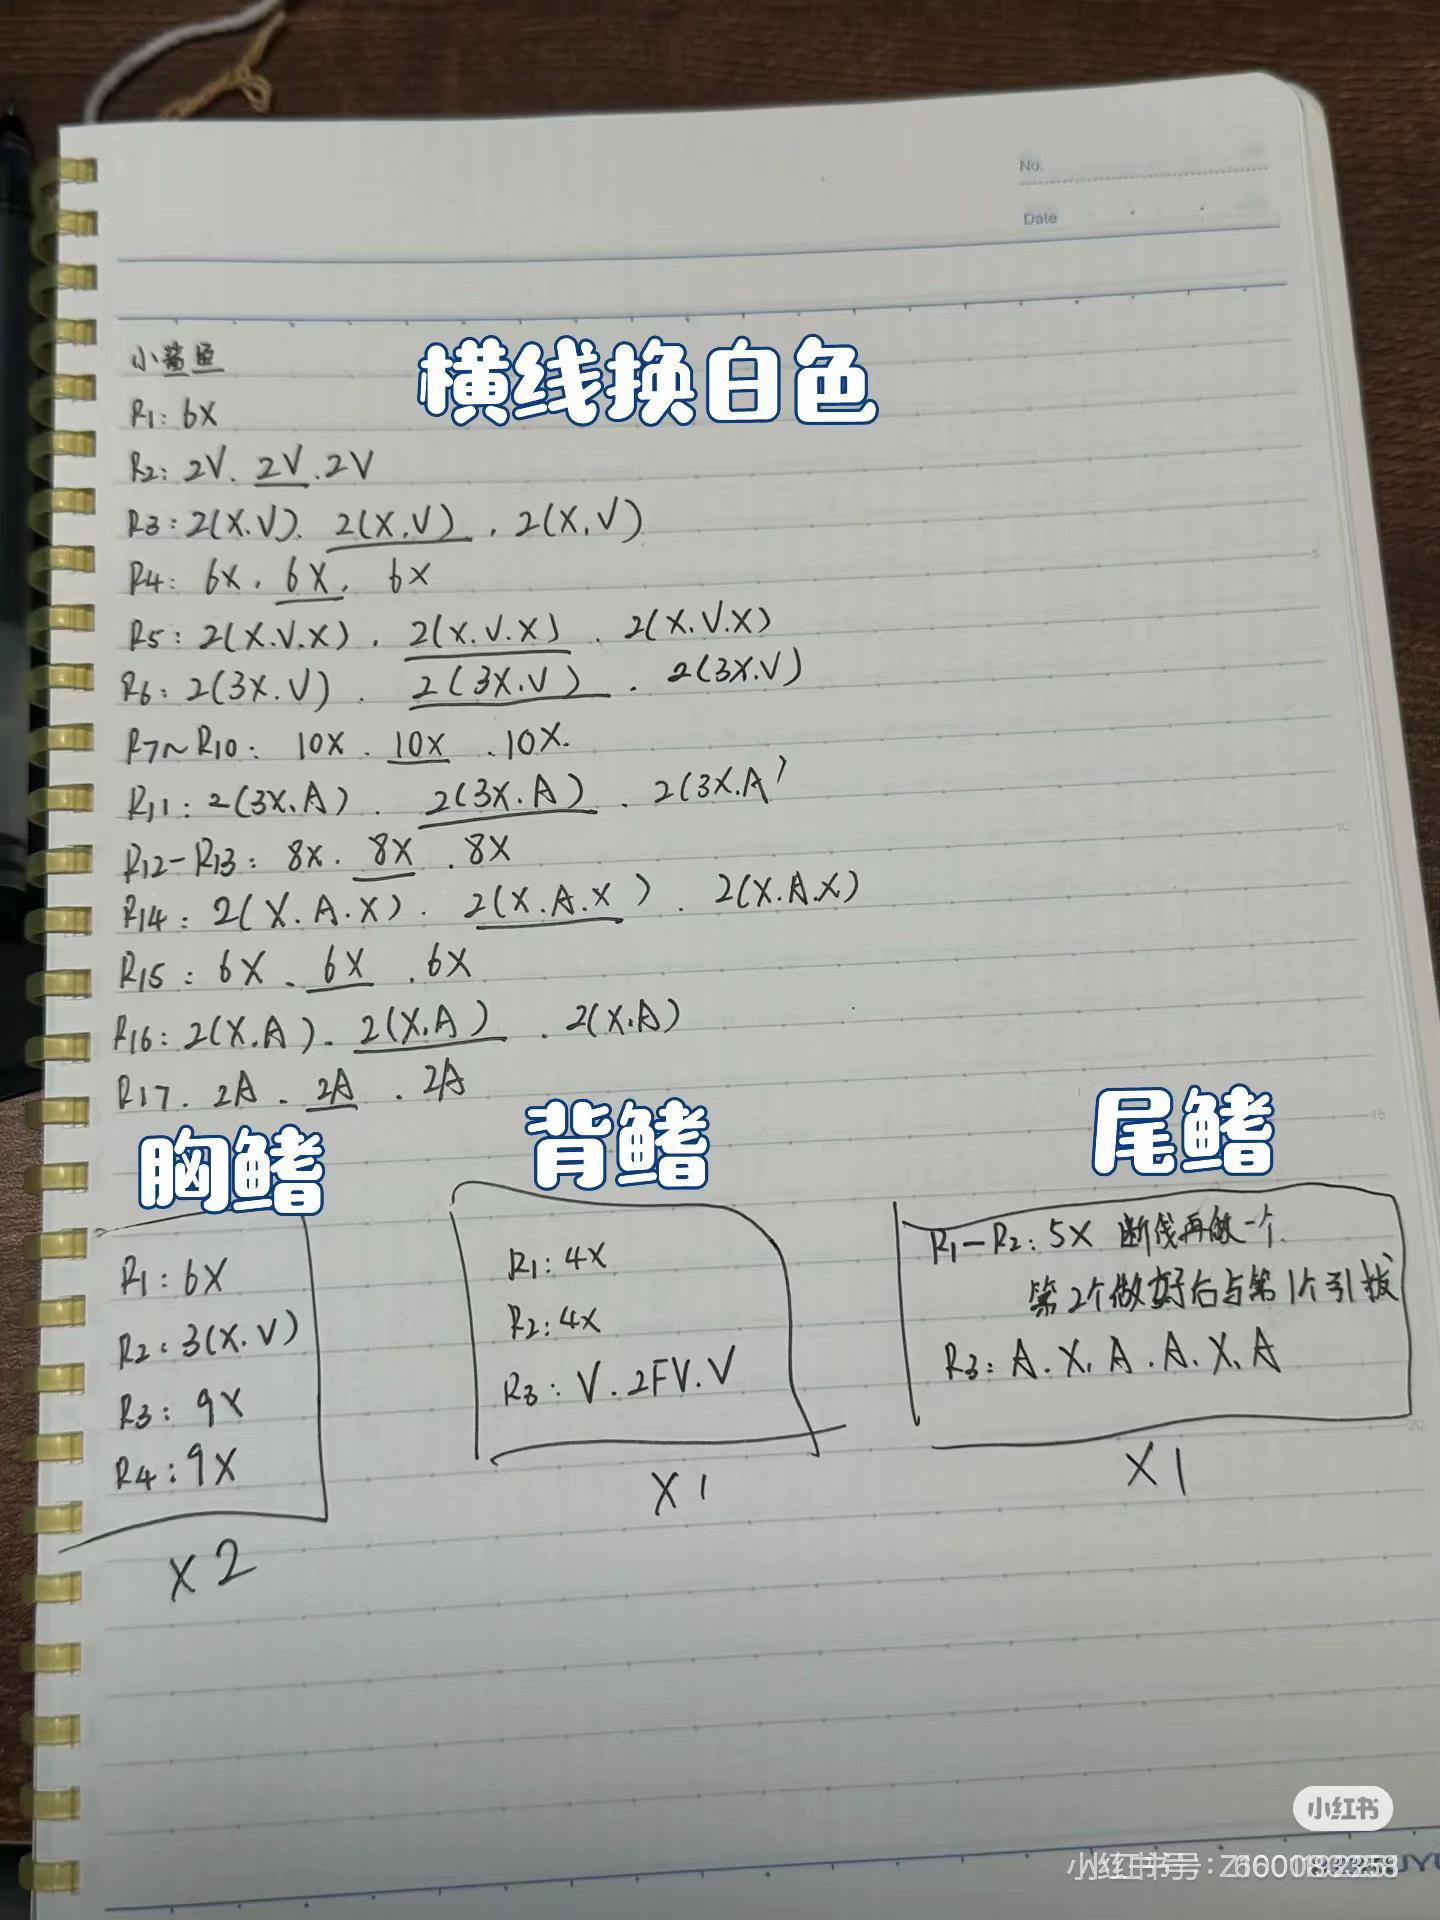 No.
Date
小鲨鱼
横线换白色
R1: 6X
R2: 2V. 2V. 2V
R3: 2(X.V). 2(X.V). 2(X.V)
R4: 6X. 6X. 6X
R5: 2(X.V.X). 2(X.V.X). 2(X.V.X)
R6: 2(3X.V). 2(3X.V). 2(3X.V)
R7~R10: 10X. 10X. 10X.
R11: 2(3X.A). 2(3X.A). 2(3X.A)
R12-R13: 8X. 8X. 8X
R14: 2(X.A.X). 2(X.A.X). 2(X.A.X)
R15: 6X. 6X. 6X
R16: 2(X.A). 2(X.A). 2(X.A)
R17. 2A. 2A. 2A
胸鳍
R1: 6X
R2: 3(X.V)
R3: 9X
R4: 9X
X2
背鳍
R1: 4X
R2: 4X
R3: V.2FV.V
X1
尾鳍
R1-R2: 5X 断线再做一个.
第2个做好后与第1个引拔
R3: A.X.A.A.X.A
X1
5
10
15
20
小红书
小红书号: